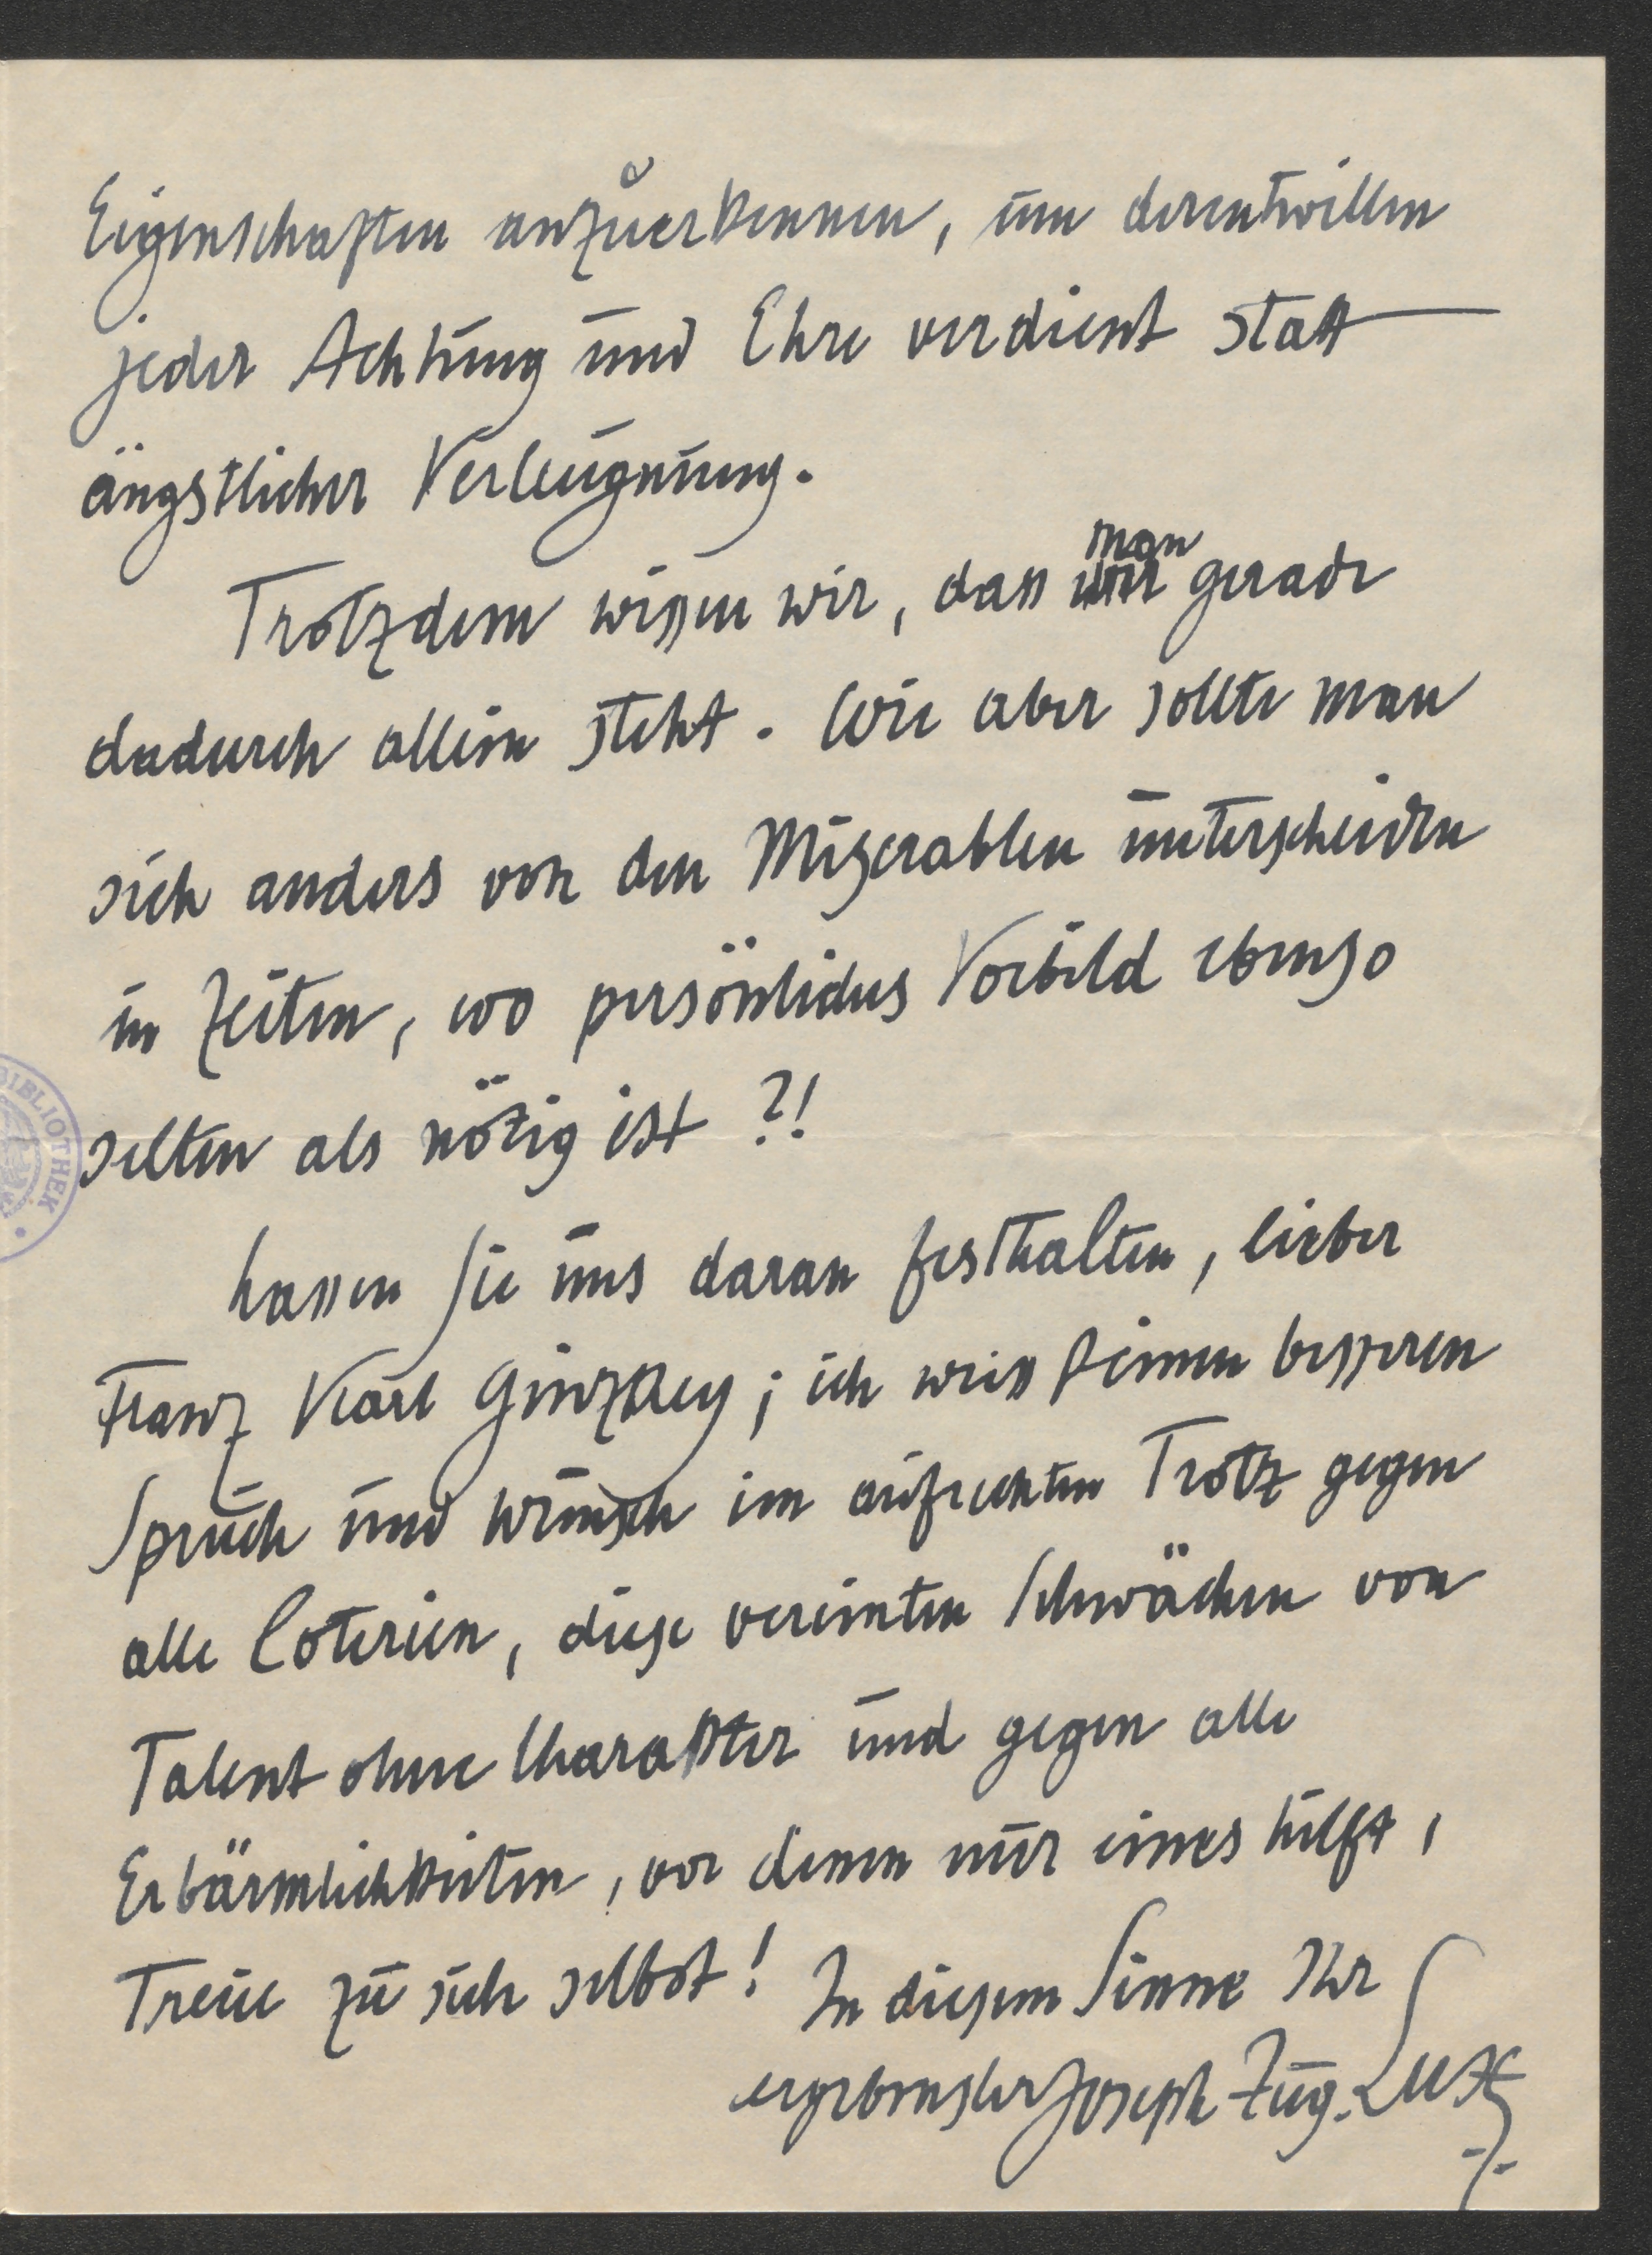 Eigenschaften anzuerkennen, um derentwillen
jeder Achtung und Ehre verdient statt
ängstlicher Verleugnung.
Trotzdem wissen wir, dass man gerade
dadurch allein steht. Wie aber sollte man
sich anders von den Miserablen unterscheiden
in Zeiten, wo persönliches Vorbild ebenso
selten als nötig ist ?!
Lassen Sie uns daran festhalten, lieber
Franz Karl Ginzkey; ich weiss keinen besseren
Spruch und Wunsch im aufrechten Trotz gegen
alle Coterien, diese vereinten Schwächen von
Talent ohne Charakter und gegen alle
Erbärmlichkeiten, vor denen nur eines hilft,
Treue zu sich selbst! In diesem Sinne Ihr
ergebenster Joseph Aug. Lux
BIBLIOTHEK